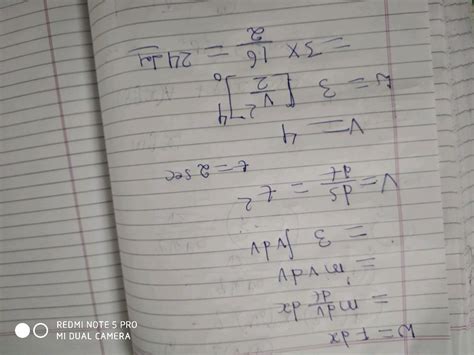 W = F dx
= m dv/dt dx
= mvdv
= 3 ∫vdv
V = ds/dt = t²
t = 2 sec
V = 4
W = 3 [v²/2]₀⁴
= 3 × 16/2 = 24
REDMI NOTE 5 PRO
MI DUAL CAMERA